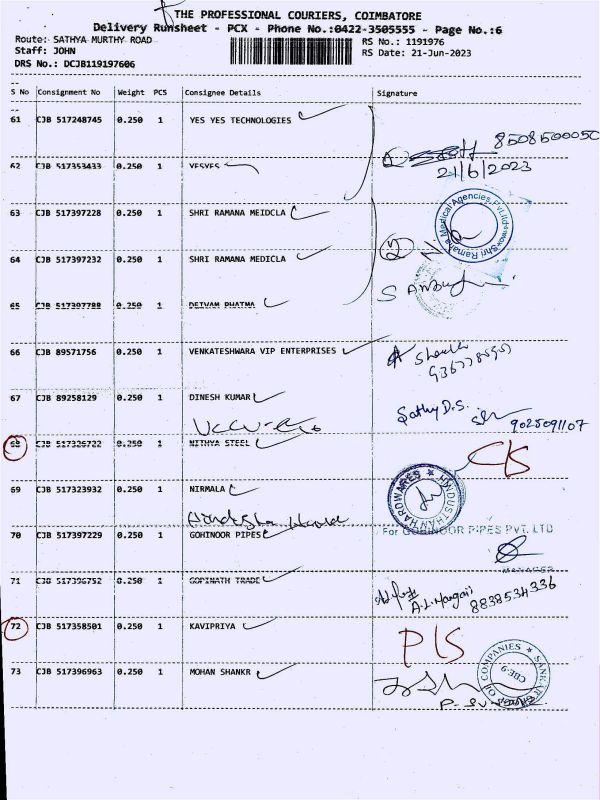 THE PROFESSIONAL COURIERS, COIMBATORE
Delivery Runsheet - PCX - Phone No.:0422-3505555 - Page No.:6
Route: SATHYA MURTHY ROAD
RS No.: 1191976
Staff: JOHN
RS Date: 21-Jun-2023
DRS No.: DCJB119197606
S No Consignment No Weight PCS Consignee Details Signature
61 CJB 517248745 0.250 1 YES YES TECHNOLOGIES
8508500050
62 CJB 517353433 0.250 1 YESYES
21/6/2023
63 CJB 517397228 0.250 1 SHRI RAMANA MEIDCLA
Shri Ramana Medical Agencies Pvt.Ltd
64 CJB 517397232 0.250 1 SHRI RAMANA MEDICLA
2
65 CJB 517397788 0.250 1 DEIVAM PHATMA
66 CJB 89571756 0.250 1 VENKATESHWARA VIP ENTERPRISES
67 CJB 89258129 0.250 1 DINESH KUMAR
Sathy D.S.
9025091107
68 CJB 517326722 0.250 1 NITHYA STEEL
C/S
69 CJB 517323932 0.250 1 NIRMALA
HINDUSTHAN HARDWARES
70 CJB 517397229 0.250 1 GOHINOOR PIPES
For GOHINOOR PIPES PVT. LTD
MANAGER
71 CJB 517396752 0.250 1 GOPINATH TRADE
8838534336
72 CJB 517358501 0.250 1 KAVIPRIYA
P/S
73 CJB 517396963 0.250 1 MOHAN SHANKR
OF COMPANIES
CBE-9